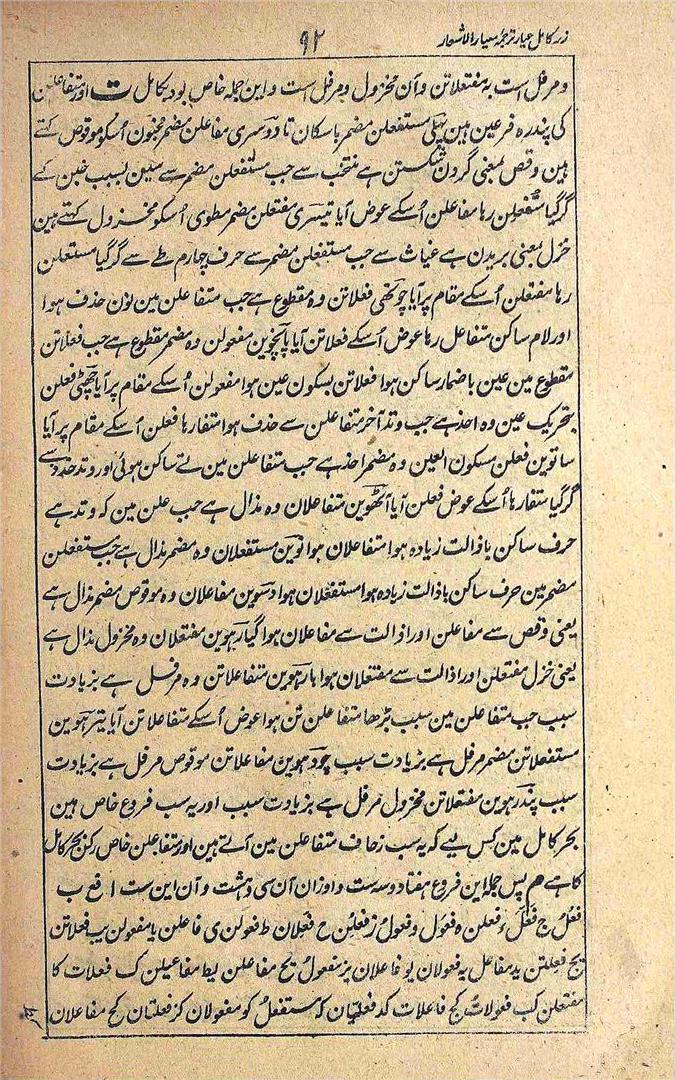 زر کامل عیار ترجمۂ معیار الاشعار
۹۲
ومرفل است بہ مفتعلاتن و آن مخزول ومرفل است و این جملہ خاص بود بکامل ت اور متفاعلن
کی پندرہ فرعین ہین پہلی مستفعلن مضمر باسکان تا دوسری مفاعلن مضمر مخبون اُسکو موقوص کہتے
ہین وقص بمعنی گردن شکستن ہے منتخب سے جب مستفعلن مضمر سے سین بسبب خبن کے
گر گیا متفعلن رہا مفاعلن اُسکے عوض آیا تیسری مفتعلن مضمر مطوی اُسکو مخزول کہتے ہین
خزل بمعنی بریدن ہے غیاث سے جب مستفعلن مضمر سے حرف چہارم طے سے گر گیا مستعلن
رہا مفتعلن اُسکے مقام پر آیا چوتھی فعلاتن وہ مقطوع ہے جب متفاعلن مین نون حذف ہوا
اور لام ساکن متفاعل رہا عوض اُسکے فعلاتن آیا پانچوین مفعولن وہ مضمر مقطوع ہے جب فعلاتن
مقطوع مین عین باضمار ساکن ہوا فعلاتن بسکون عین ہوا مفعولن اُسکے مقام پر آیا چھٹی فعلن
بتحریک عین وہ احذ ہے جب وتد آخر متفاعلن سے حذف ہوا متفا رہا فعلن اُسکے مقام پر آیا
ساتوین فعلن مسکون العین وہ مضمر احذ ہے جب متفاعلن مین تے ساکن ہوئی اور وتد حذذ سے
گر گیا متفا رہا اُسکے عوض فعلن آیا آٹھوین متفاعلان وہ مذال ہے جب علن مین کہ وتد ہے
حرف ساکن باذالت زیادہ ہوا متفاعلان ہوا نوین مستفعلان وہ مضمر مذال ہے جب مستفعلن
مضمر مین حرف ساکن باذالت زیادہ ہوا مستفعلان ہوا دسوین مفاعلان وہ موقوص مضمر مذال ہے
یعنی وقص سے مفاعلن اور اذالت سے مفاعلان ہوا گیارہوین مفتعلان وہ مخزول مذال ہے
یعنی خزل مفتعلن اور اذالت سے مفتعلان ہوا بارہوین متفاعلاتن وہ مرفل ہے بزیادت
سبب جب متفاعلن مین سبب بڑھا متفاعلن تن ہوا عوض اُسکے متفاعلاتن آیا تیرہوین
مستفعلاتن مضمر مرفل ہے بزیادت سبب چودہوین مفاعلاتن موقوص مرفل ہے بزیادت
سبب پندرہوین مفتعلاتن مخزول مرفل ہے بزیادت سبب اور یہ سب فروع خاص ہین
بحر کامل مین کس لیے کہ یہ سب زحاف متفاعلن مین آتے ہین اور متفاعلن خاص رکن بحر کامل
کا ہے ھم پس جملہ این فروع ہفتاد و سہ ست و اوزان آن سی و ہشت و آن این ست ا فع ب
فعلُ ج فَعَلَ ء فعلن ہ فعول و فعولُ ز فعلن ح فعلان ط فعولن ی فاعلن یا مفعولن یب فعلاتن
یج فعلتن ید مفاعل یہ فعولان یو فاعلان یز مفعولُ یح مفاعلن یط مفاعیلن ک فعلات کا
مفتعلن کب فعولات کج فاعلات کد فعلیان کہ مستفعلُ کو مفعولان کز فعلتان کح مفاعلان